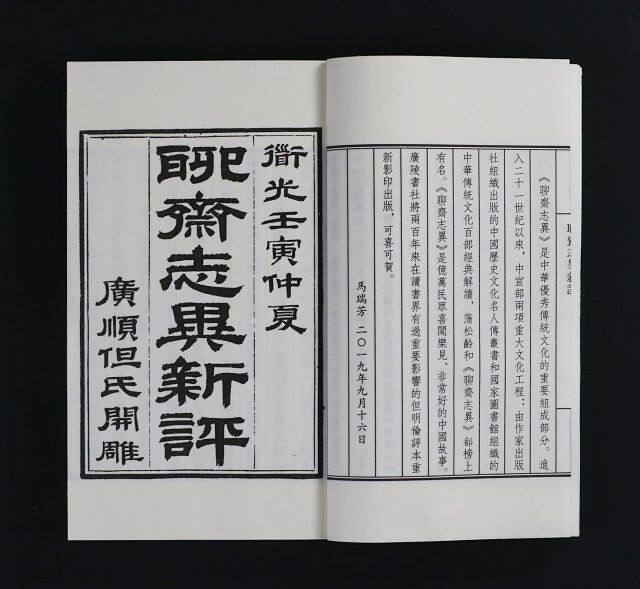 《聊齋志異》是中華優秀傳統文化的重要組成部分。進
入二十一世紀以來，中宣部兩項重大文化工程：由作家出版
社組織出版的中國歷史文化名人傳叢書和國家圖書館組織的
中華傳統文化百部經典解讀，蒲松齡和《聊齋志異》都榜上
有名。《聊齋志異》是億萬民眾喜聞樂見、非常好的中國故事。
廣陵書社將兩百年來在讀書界有過重要影響的但明倫評本重
新影印出版，可喜可賀。
馬瑞芳 二〇一九年九月十六日
衜光壬寅仲夏
聊齋志異新評
廣順但氏開雕